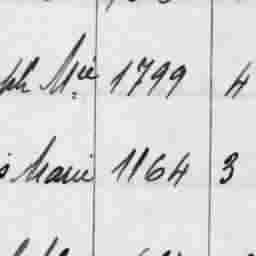 ph Mie 1799 4
s Marie 1164 3